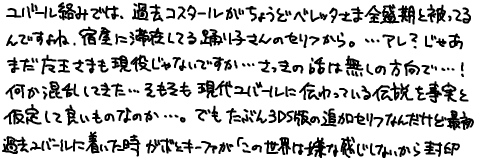 ユバール絡みでは、過去コスタールがちょうどベレッタさま全盛期と被ってる
んですよね、宿屋に滞在してる踊り子さんのセリフから。…アレ？じゃあ
まだ左王さまも現役じゃないですか…さっきの話は無しの方向で…！
何か混乱してきた…そもそも現代ユバールに伝わっている伝説を事実と
仮定して良いものなのか…。でもたぶん3DS版の追加セリフなんだけど最初
過去ユバールに着いた時ガボとキーファが「この世界は嫌な感じしないから封印